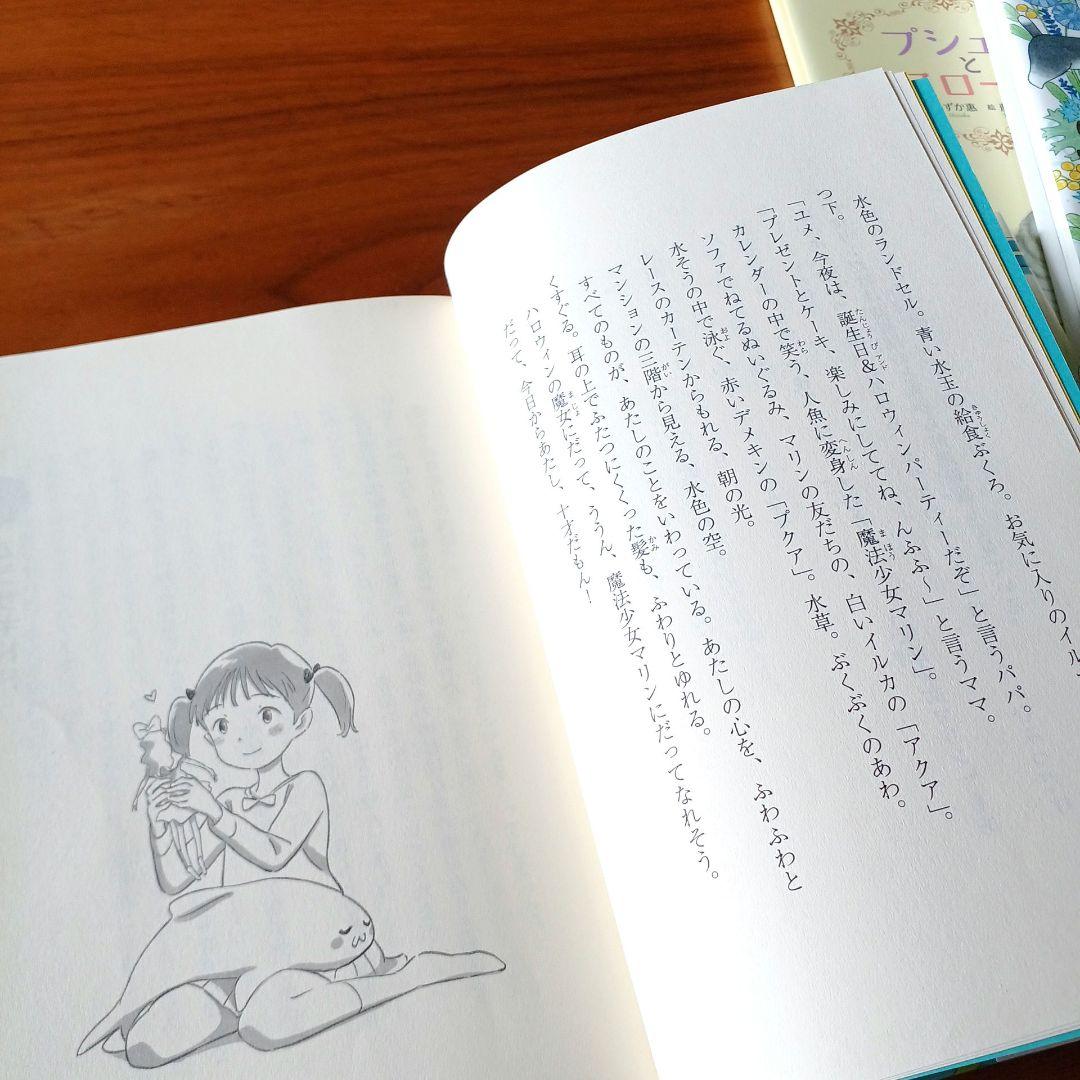 水色のランドセル。青い水玉の給食ぶくろ。お気に入りのイル
つ下。
「ユメ、今夜は、誕生日&ハロウィンパーティーだぞ」と言うパパ。
「プレゼントとケーキ、楽しみにしててね、んふふ～」と言うママ。
カレンダーの中で笑う、人魚に変身した「魔法少女マリン」。
ソファでねてるぬいぐるみ、マリンの友だちの、白いイルカの「アクア」。
水そうの中で泳ぐ、赤いデメキンの「プクア」。水草。ぶくぶくのあわ。
レースのカーテンからもれる、朝の光。
マンションの三階から見える、水色の空。
すべてのものが、あたしのことをいわっている。あたしの心を、ふわふわと
くすぐる。耳の上でふたつにくくった髪も、ふわりとゆれる。
ハロウィンの魔女にだって、ううん、魔法少女マリンにだってなれそう。
だって、今日からあたし、十才だもん！
プシュ
と
ずか惠 絵